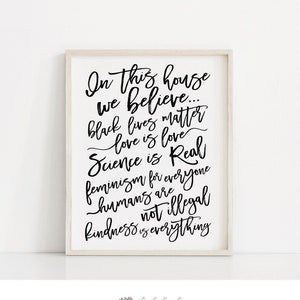 In this house
we believe...
black lives matter
love is love
Science is Real
feminism for everyone
humans are
not illegal
kindness is everything